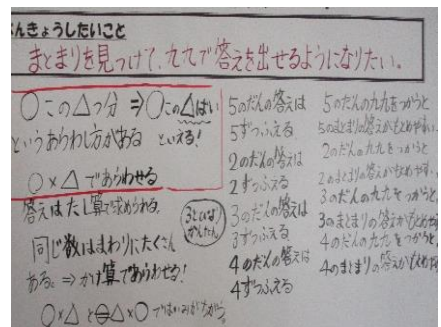 んきょうしたいこと
まとまりを見つけて、九九で答えを出せるようになりたい。
○この△つ分 ⇒ ○この△ばい
というあらわし方がある といえる!
○×△であらわせる
答えはたし算で求められる。
同じ数はまわりにたくさん
ある。⇒かけ算であらわせる!
○×△と△×○では
5のだんの答えは
5ずつふえる
2のだんの答えは
2ずつふえる
3のだんの答えは
3ずつふえる
4のだんの答えは
4ずつふえる
5のだんの九九をつかうと
5のまとまりの答えがもとめやすい
2のだんの九九をつかうと
2のまとまりの答えがもとめやす
3のだんの九九をつかうと、
3のまとまりの答えがもとめやす
4のだんの九九をつかうと、
4のまとまりの答えがもとめやす